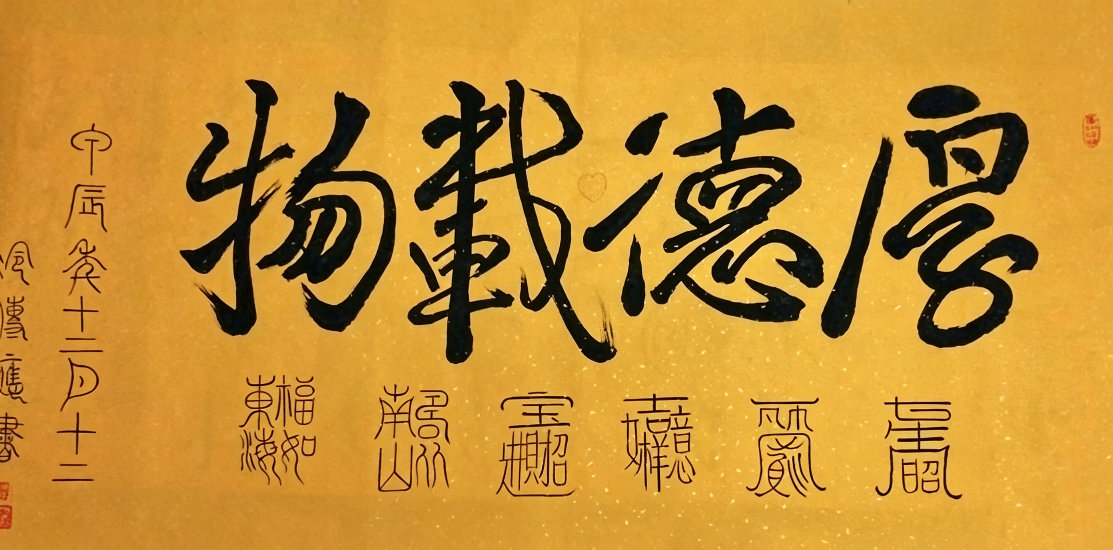 厚德載物
吉祥如意
招財進宝
壽比南山
福如東海
甲辰年十二月十二
傳應書